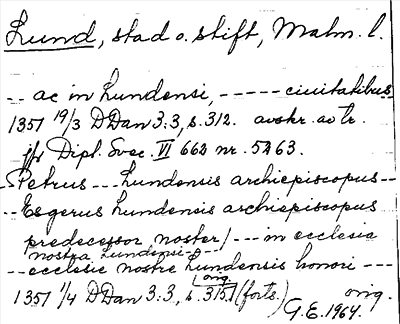 Lund, stad o. stift, Malm. l.
-- ac in Lundensi, ----- ciuitatibus
1351 19/3 DDan 3:3, s. 312. avskr. av tr.
jfr Dipl. Svec. VI 662 nr. 5263.
-Petrus --- Lundensis archiepiscopus--
--Esgerus Lundensis archiepiscopus
predecessor noster/--- in ecclesia
nostra Lundensi---
--ecclesie nostre Lundensis honori ---
1351 1/4 DDan 3:3, s. 315. (forts.) orig.
orig.
G.E. 1964.